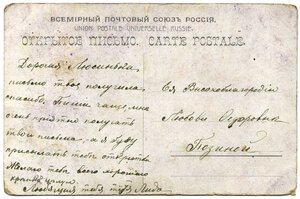 ВСЕМІРНЫЙ ПОЧТОВЫЙ СОЮЗЪ РОССІЯ.
UNION POSTALE UNIVERSELLE RUSSIE.
ОТКРЫТОЕ ПИСЬМО. CARTE POSTALE.
Дорогая Люсинька
письмо твое получила
спасибо. Пиши чаще, мне
очень приятно получать
твои письма, а я буду
присылать тебѣ открытки
Желаю тебѣ всего хорошаго
крѣпко цѣлую
Любящая тебя Лида.
Ея Высокоблагородію
Любови Ѳедоровнѣ